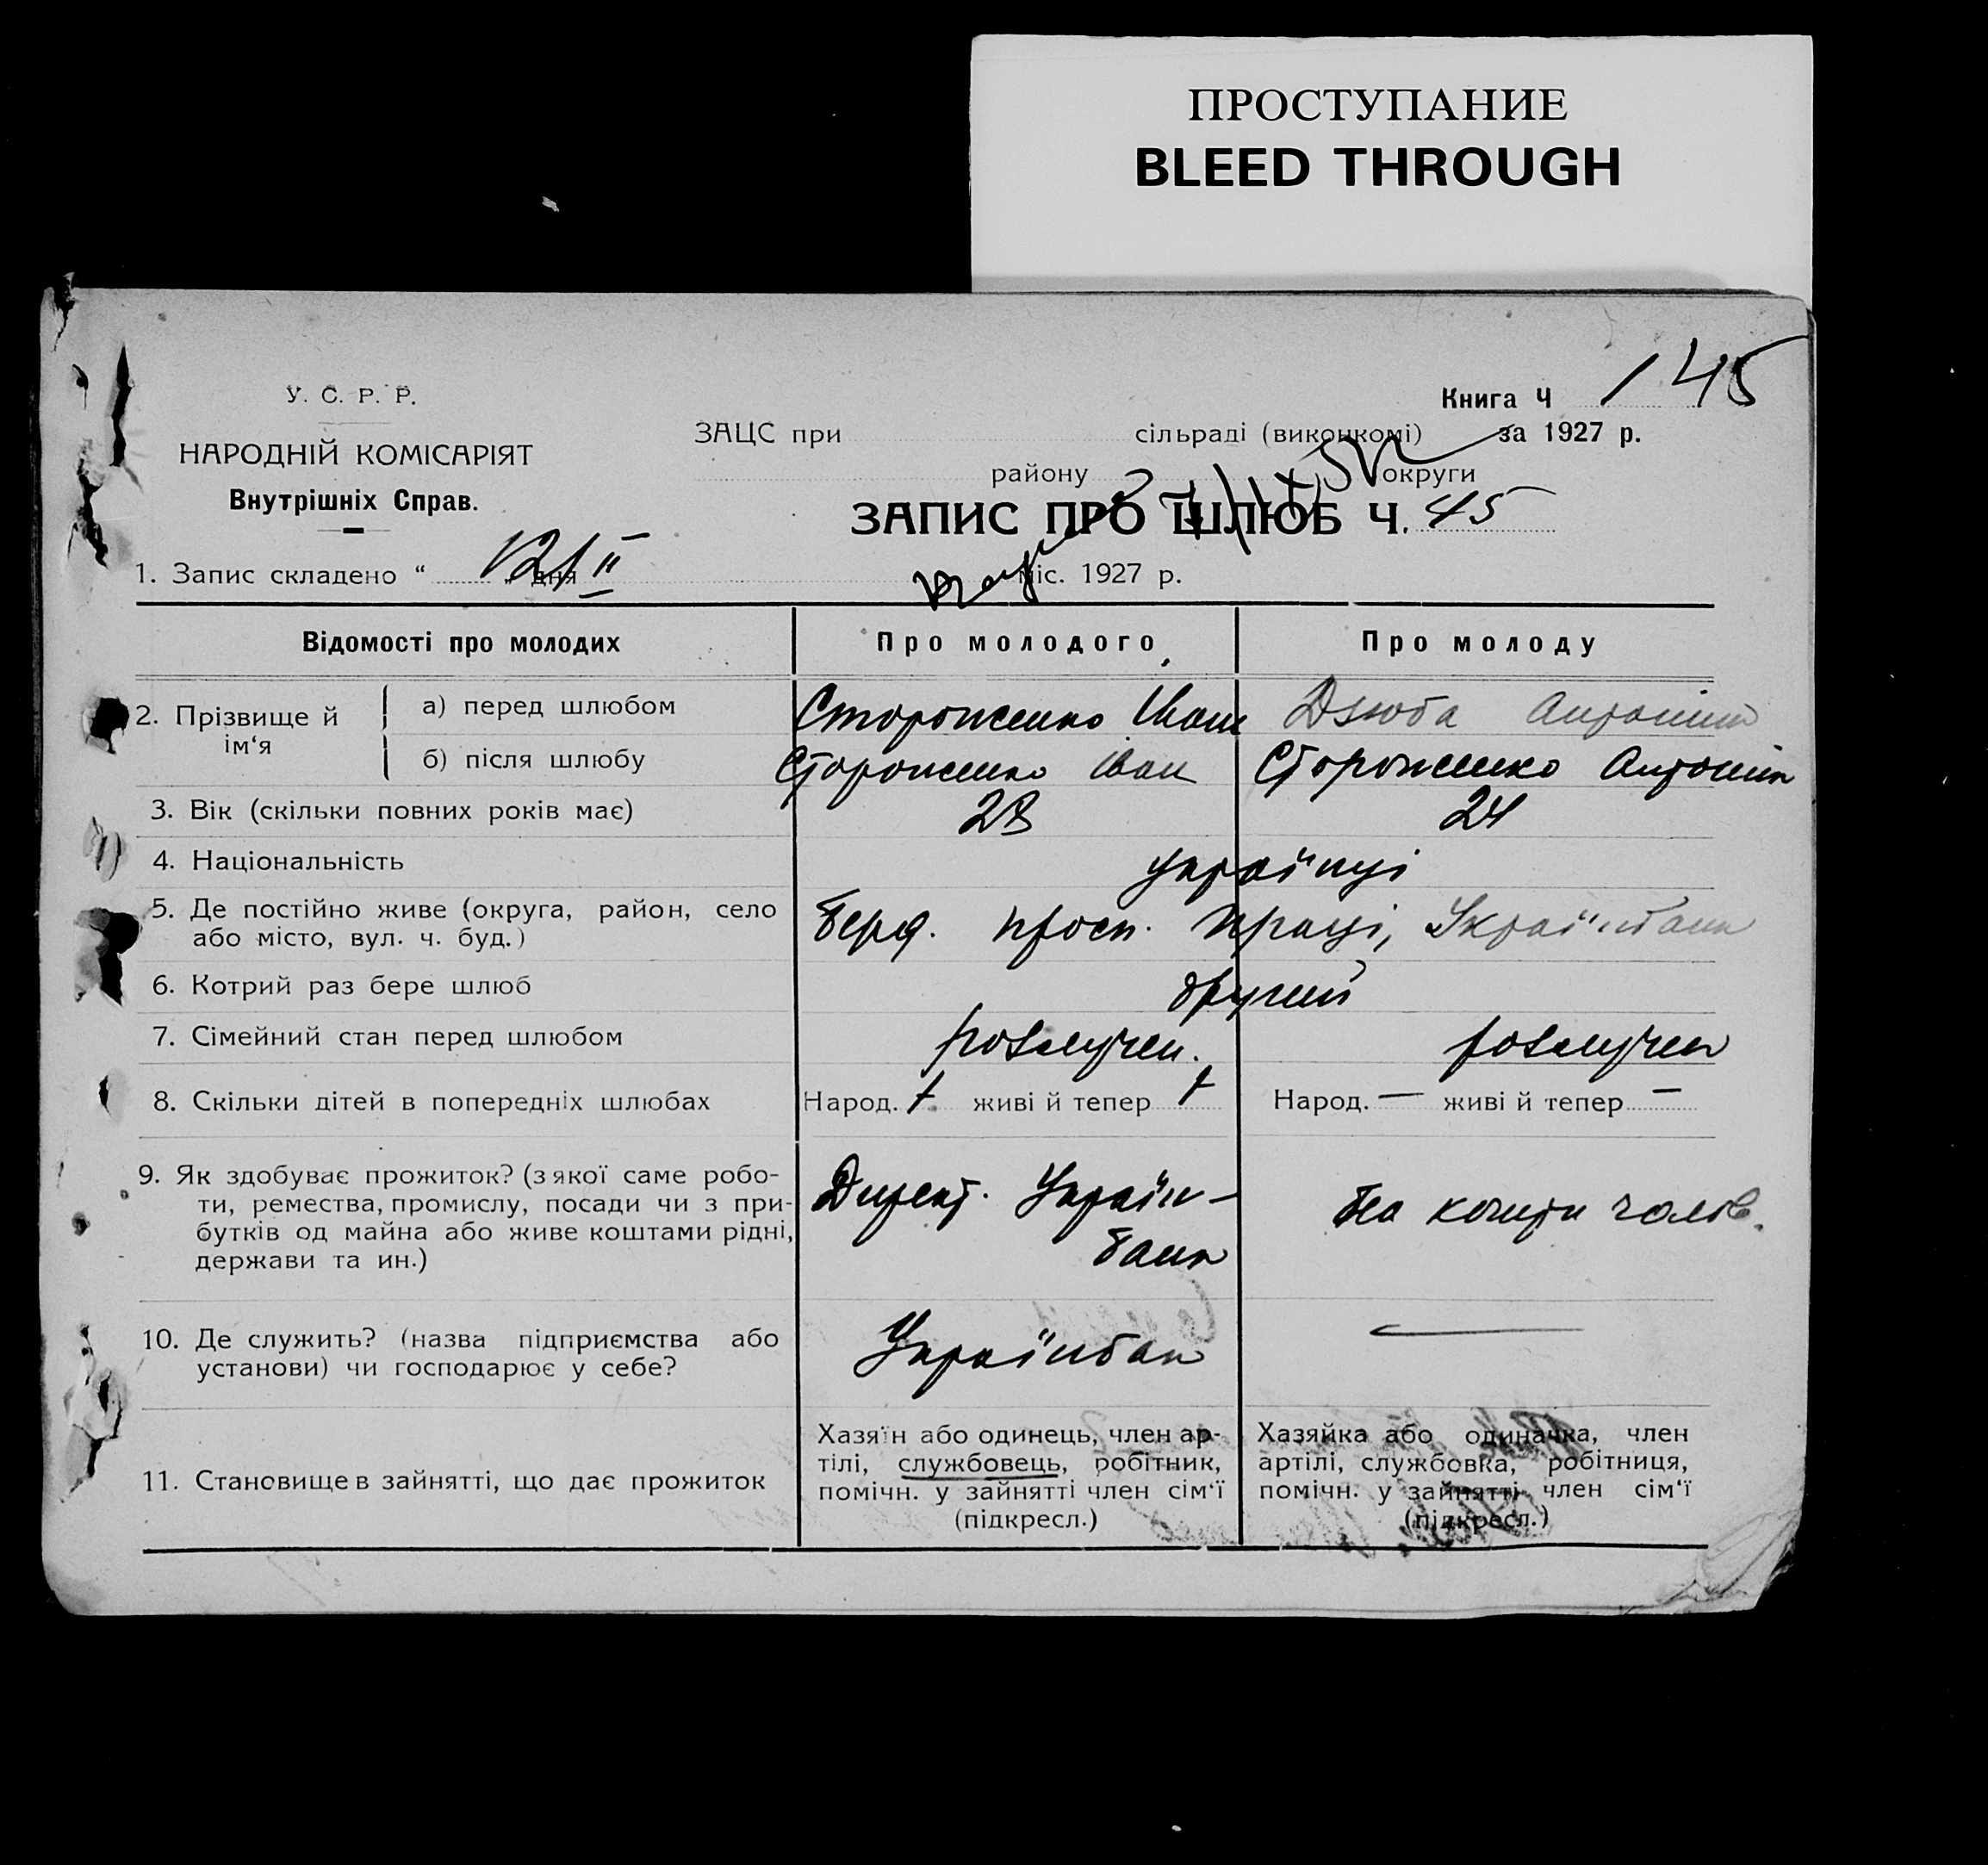 ПРОСТУПАНИЕ
BLEED THROUGH
У. С. Р. Р.
НАРОДНІЙ КОМІСАРІЯТ
Внутрішніх Справ.
Книга Ч 145
ЗАЦС при сільраді (виконкомі) за 1927 р.
району округи
ЗАПИС ПРО ШЛЮБ Ч. 45
1. Запис складено “ 12/II „ дня міс. 1927 р.
Відомості про молодих Про молодого Про молоду
2. Прізвище й ім‘я
а) перед шлюбом Стороженко Іван Дзюба Антонін
б) після шлюбу Стороженко Іван Стороженко Антонін
3. Вік (скільки повних років має) 28 24
4. Національність українці
5. Де постійно живе (округа, район, село
або місто, вул. ч. буд.) Берд. просп. Праці, Українбанк
6. Котрий раз бере шлюб другий
7. Сімейний стан перед шлюбом розлучен. розлучен
8. Скільки дітей в попередніх шлюбах Народ. 1 живі й тепер 1 Народ. — живі й тепер —
9. Як здобуває прожиток? (з якої саме робо-
ти, ремества, промислу, посади чи з при-
бутків од майна або живе коштами рідні,
держави та ин.)
Директ. Україн-
банк
На кошти чолов.
10. Де служить? (назва підприємства або
установи) чи господарює у себе?
Українбанк —
11. Становище в зайнятті, що дає прожиток
Хазяїн або одинець, член ар-
тілі, службовець, робітник,
помічн. у зайнятті член сім‘ї
(підкресл.)
Хазяйка або одиначка, член
артілі, службовка, робітниця,
помічн. у зайнятті член сім‘ї
(підкресл.)